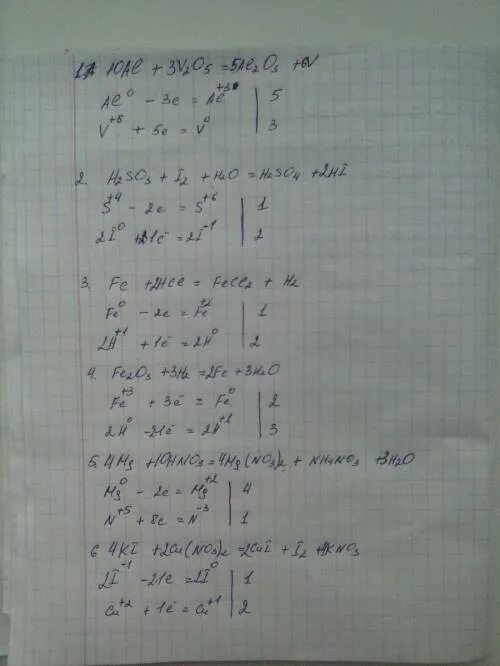 1. 10Al + 3V2O5 = 5Al2O3 + 6V
Al⁰ - 3e = Al⁺³ | 5
V⁺⁵ + 5e = V⁰ | 3
2. H2SO3 + I2 + H2O = H2SO4 + 2HI
S⁺⁴ - 2e = S⁺⁶ | 1
2I⁰ + 1e = 2I⁻¹ | 2
3. Fe + 2HCl = FeCl2 + H2
Fe⁰ - 2e = Fe⁺² | 1
2H⁺¹ + 1e = 2H⁰ | 2
4. Fe2O3 + 3H2 = 2Fe + 3H2O
Fe⁺³ + 3e = Fe⁰ | 2
2H⁰ - 2·1e = 2H⁺¹ | 3
5. 4Mg + 10HNO3 = 4Mg(NO3)2 + NH4NO3 + 3H2O
Mg⁰ - 2e = Mg⁺² | 4
N⁺⁵ + 8e = N⁻³ | 1
6 4KI + 2Cu(NO3)2 = 2CuI + I2 + 4KNO3
2I⁻¹ - 2·1e = 2I⁰ | 1
Cu⁺² + 1e = Cu⁺¹ | 2